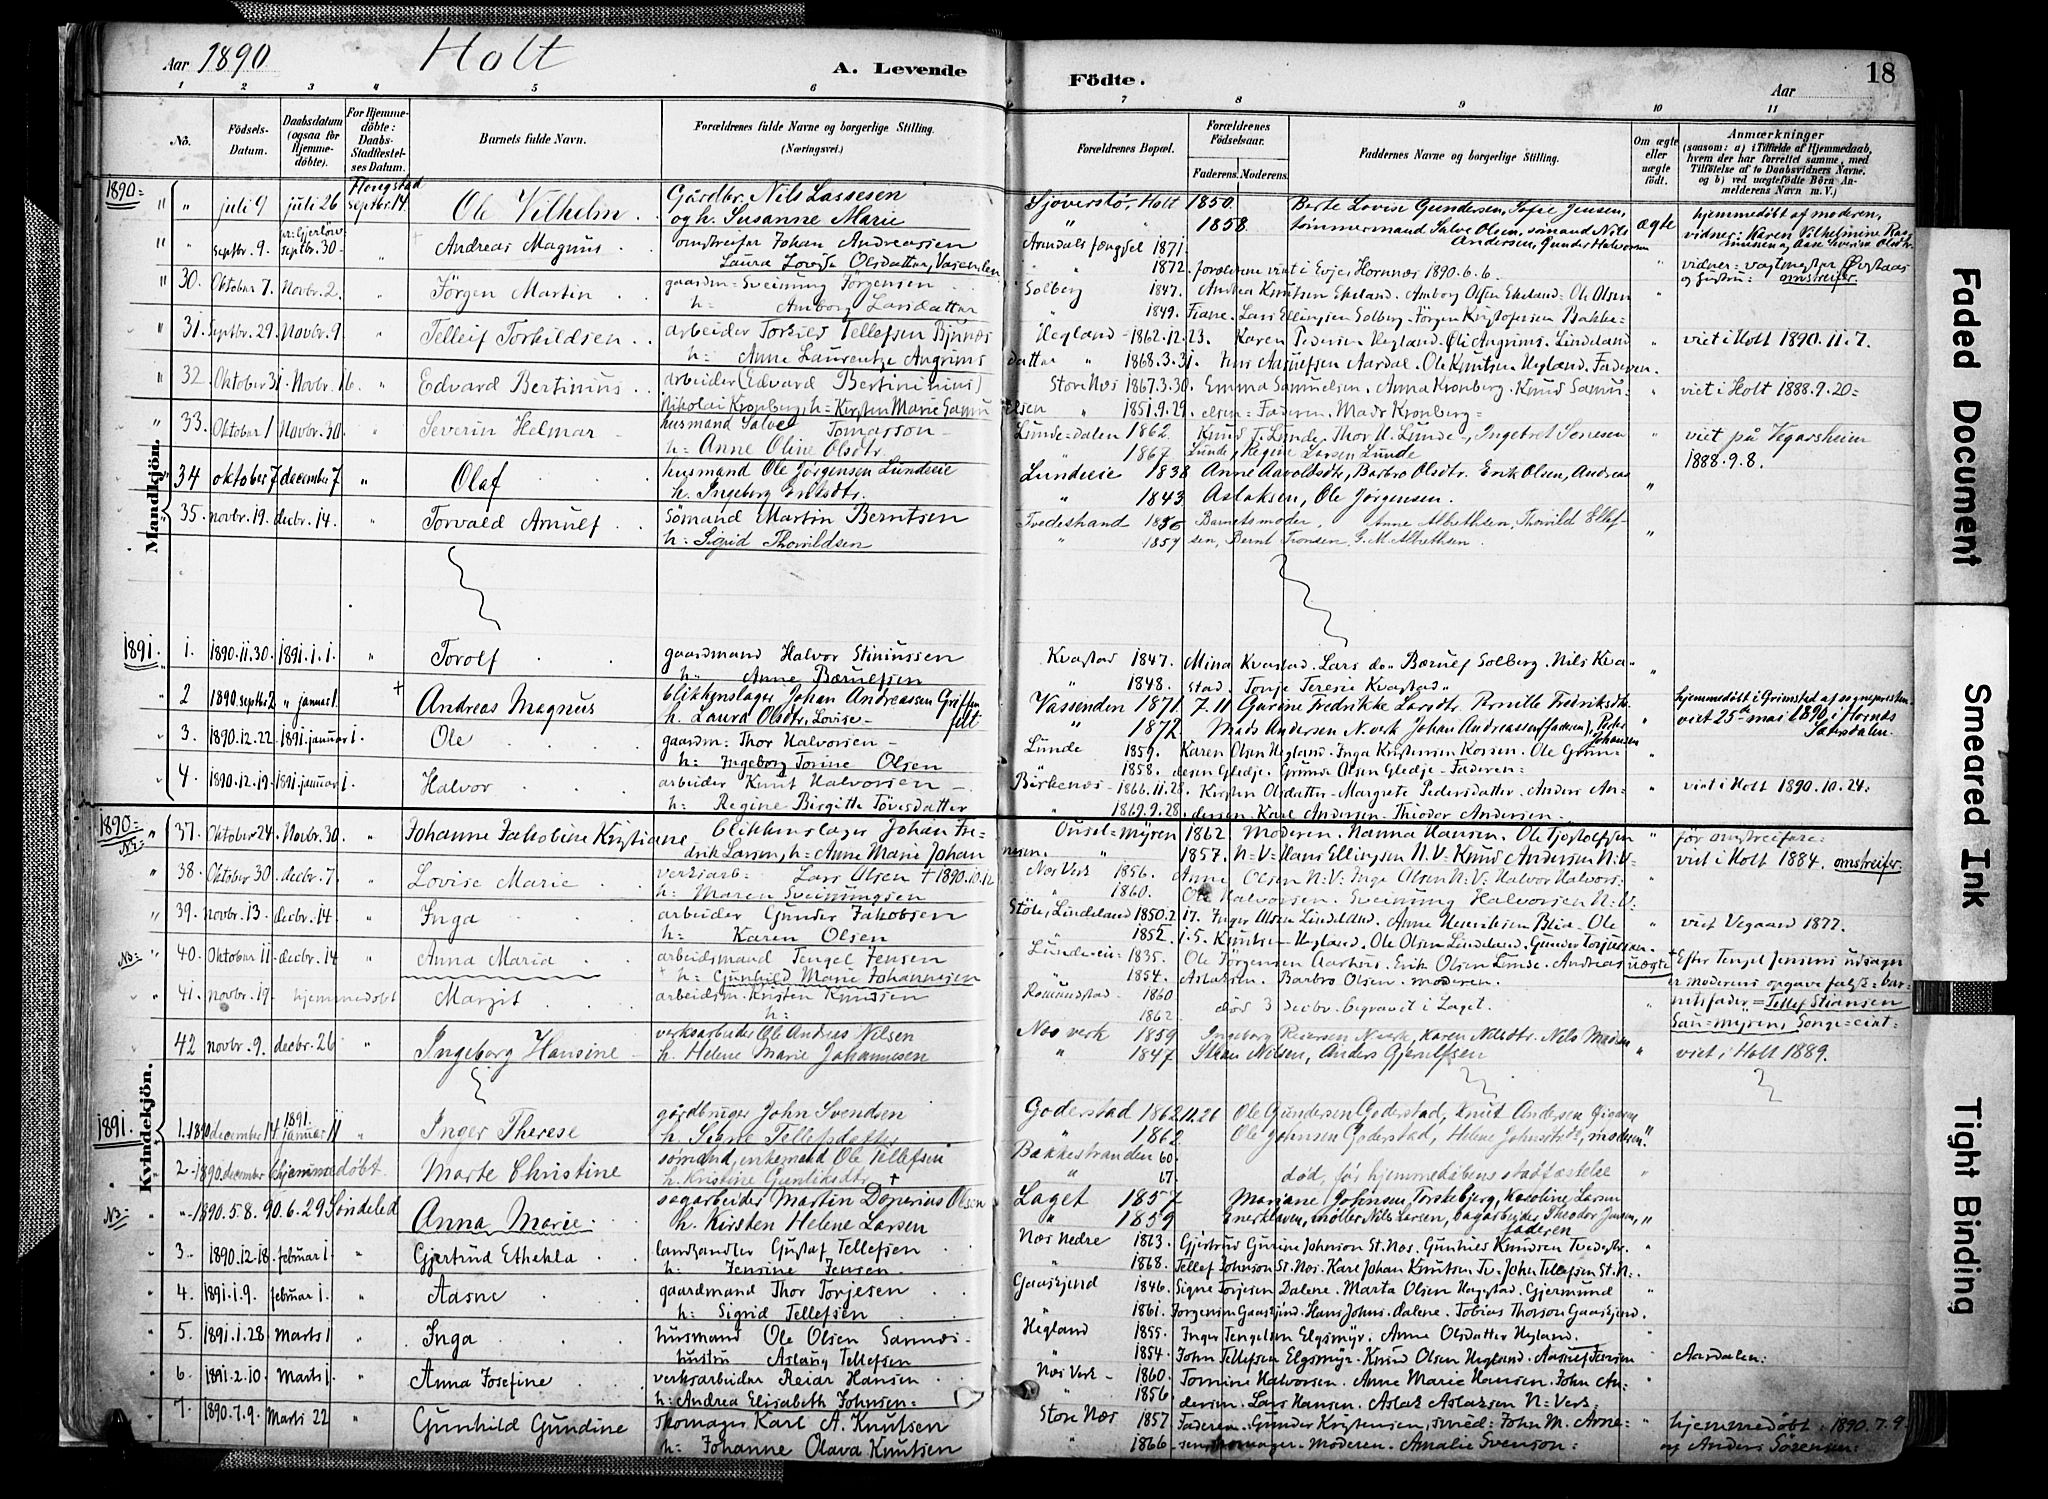 Aar 1890 Holt A. Levende Födte. Aar 18
1 2 3 4 5 6 7 8 9 10 11
No. Födsels-Datum. Daabsdatum (ogsaa for Hjemmedöbte). For Hjemmedöbte: Daabs-Stadfæstelses Datum. Barnets fulde Navn. Forældrenes fulde Navne og borgerlige Stilling. (Næringsvei.) Forældrenes Bopæl. Forældrenes Födselsaar. Faderens. Moderens. Faddernes Navne og borgerlige Stilling. Om ægte eller uægte födt. Anmærkninger (saasom: a) i Tilfælde af Hjemmedaab, hvem der har forrettet samme, med Tilföielse af to Daabsvidners Navne, og b) ved uægtefödte Börn Anmelderens Navn m. V.)
Mandkjön.
1890= " juli 9 juli 26 septbr. 14 Ole Vilhelm Gårdbr. Nils Lassesen Holt 1850 Berte Lovise Gundersen, Sofie Jensen, hjemmedøbt af moderen,
og h. Susanne Marie " 1858 tømmermand Salve Olsen, sømand Nils ægte vidner: Karen Vilhelmine
septbr. 9. septbr. 30 " Andreas Magnus omstreifer Johan Andreassen Arendals fængsel 1871 Andersen, Gunder Halvorsen
Laura Lovise Olsdatter, 1872. forældrene viet i Evje, Hornnæs 1890.6.6. omstreifer.
30. Oktober 7. Novbr. 2. " Jörgen Martin gaardm= Sveinung Jörgensen Solberg 1847. Andrea Knutsen Ekeland. Amborg Olsen Ekeland= Ole Olsen "
h= Amborg Larsdatter " 1849. Fiane. Lars Ellingsen Solberg. Jörgen Kristofersen Bakke=
31. septbr. 29 Novbr. 9 " Tellef Torkildsen arbeider Torkild Tellefsen Hegland 1862.12.23. Karen Pedersen Hegland. " viet i Holt 1890.11.7.
h= Anne Laurentze Angrims datter " 1868.3.31. Jens Aanulfsen Aardal. Ole Knutsen Hegland. Faderen.
32. Oktober 31. Novbr. 16. " Edvard Bertinius arbeider (Edvard Bertininius) Store Næs 1867.3.30. Emma Samuelsen. Anna Kronberg. Knud Samu= " viet i Holt 1888.9.20=
Nikolai Kronberg, h= Kirsten Marie Samuelsen " 1851.9.29. elsen= Faderen. Mads Kronberg=
33. Oktober 1 Novbr. 30. " Severin Helmar husmand Salve Tomasson Lunde=dalen 1862. Knud T. Lunde. Thor H. Lunde, Ingebret " viet på Vegarsheien
h= Anne Oline Olsdtr " 1867 Lunde, Regine Larsen Lunde 1888.9.8.
34 oktober 7 december 7 " Olaf husmand Ole Jörgensen Lundeeie Lundeeie 1838 Anne Barbro Olsdtr. Erik Olsen, Andreas
h. Ingeborg Eriksdtr. " 1843 Aslaksen, Ole Jørgensen. "
35. novbr. 19. decbr. 14. " Torvald Arnulf Sömand Martin Berntsen Tvedestrand 1856 Barnetsmoder, Anne Albethsen, Thorvild Ellef-
h= Sigrid Thorvildsen " 1859 sen, Bernt Tronsen, G.M. Albethsen. "
1891. 1. 1890.11.30. 1891.1.1. " Torolf gaardmand Halvor Stiniussen Kvastad 1847. Mina Kvastad. Lars do" Bærulf Solberg. Nils Kva= "
h= Anne Bærulfsen " 1848. stad. Tonje Teresie Kvastad.
" 2 1890 septbr. 2 " januar 1. + Andreas Magnus blikkenslager Johan Andreassen Griffenfelt Vassenden 1871 7.11 Gurine Fredrikke Larsdtr. Pernille Fredriksdtr. hjemmedøbt i Grimstad af sognepresten
h. Laura Olsdtr. Lovise " 1872. Mads Andersen N. verk Johan Andreassen (faderen), Peder Johansen " viet 25de mai 1890 i Hornes Sætersdalen.
3. 1890.12.22. 1891. januar 1. " Ole gaardm= Thor Halvorsen Lunde 1859. Karen Olsen Hegland. Inga Kristensen "
h= Ingeborg Torine Olsen " 1858. Gledje. Grunde Olsen Gledje. Faderen=
4. 1890.12.19. 1891. januar 1. " Halvor arbeider Knut Halvorsen Birkenæs 1866.11.28. Kirsten Olsdatter. Margrete Pedersdatter. Anders An= " viet i Holt 1890.10.24=
h= Regine Birgitte Tövesdatter " 1869.9.28. dersen. Karl Andersen. Theodor Andersen.
Kvindekjön.
1890= 37. Oktober 24 Novbr. 30 " Johanne Jakobine Kristiane blikkenslager Johan Fre= Ousel=myren 1862 Moderen. Hanna Hansen. Ole " før omstreifere=
drik Larsen, h= Anne Marie Johannesen. " 1857. N=V= Hans Ellingsen N.V= Knud Andersen N=V= viet i Holt 1884. omstreifer
38. Oktober 30 decbr. 7. " Lovise Marie verksarb= Lars Olsen + 1890.10.12 Næs Verk 1856. Anne Olsen N=V= Inge Olsen N=V= Halvor Halvors= "
h= Maren Sveinungsen " 1860. Ole Halvorsen. Sveinung Halvorsen N=V=
39. novbr. 13. decbr. 14. " Inga arbeider Gunder Jakobsen Lindeland 1850.2.17. Inger Olsen Lindeland. Anne Henriksen Ole " viet Vegaard 1877.
h= Karen Olsen " 1852. 1.5. Knutsen Hegland. Ole Olsen Lindeland. Gunder
NB= 40. Oktober 11 decbr. 14 " Anna Maria arbeidsmand Tengel Jensen Lunde=eie= 1835. Ole Jörgensen Aarhus. Erik Olsen Lunde. Andreas uægte + Efter Tengel Jensens udsagn
+ h= Gunhild Marie Johannesen " 1854. Aslaksen. Barbro Olsen. moderen. er moderens opgave falsk= bar=
41. novbr. 19 hjemmedøbt Margit arbeidsm. Kristen Knutsen Romundstad 1860 död 3 decbr. begravet i Laget. " netsfader= Tellef Stiansen
h= 1862. Sau=myren, Songe=eiet=
42 novbr. 9. decbr. 26 " Ingeborg Hansine verksarbeider Ole Andreas Nilsen Næs verk 1859 Ingeborg Pedersen N. verk, Karen Nilsdtr. Nils
h. Helene Marie Johannesen " 1847 Nilsen, Anders Gjerulfsen " viet i Holt 1889.
1891. 1. 1890 december 14 1891. januar 11 " Inger Therese gårdbruger John Svendsen Goderstad 1862.11.26 Ole Gundersen Goderstad, Knut Andersen
h. Signe Tellefsdatter " 1862 Ole Johnsen Goderstad, Helene Johnsdtr, moderen "
2 1890 december hjemmedøbt Marte Christine sømand, enkemand Ole Tellefsen Bakkestranden 60.
h. Kristine Gunleiksdtr + " 67. död, før hjemmedåbens stadfæstelse "
NB= " 1890.5.8. 90.6.29 Söndeled Anna Marie. sagarbeider Martin Olsen Laget 1857 Mariane Johnsen, Torskebjerg, Karoline Larsen
h. Kirsten Helene Larsen " 1859 møller Nils Larsen, sagarbeider Theodor Jensen, faderen "
3. 1890.12.18. februar 1. " Gjertrud Ethekla landhandler Gustaf Tellefsen Næs Nedre 1863. Gjertrud Gurine Johnson St. Næs. Gunhild Knudsen Tvedestr. "
h= Jensine Jensen. " 1868. Tellef Johnson St. Næs. Karl Johan Knutsen Tv. John Tellefsen St. N=
4. 1891.1.9. februar 1. " Aasne gaardmand Thor Torjesen Gaaskjend 1846. Signe Torjesen Dalene. Marta Olsen Gjermund "
h= Sigrid Tellefsen " 1861. Jorgensen Gaaskjend. Hans Johns. dalene. Tobias Thorson Gaaskjend.
5. 1891.1.28. Marts 1 " Inga husmand Ole Olsen Sannæs. Hegland 1855. Inger Tengelsen Elgsmyr. Anne Olsdatter Hegland. "
hustru Aslaug Tellefsen " 1854. John Tellefsen Elgsmyr. Knud Olsen Hegland. Aardalen.
6. 1891.2.10. Marts 1. " Anna Josefine verksarbeider Reiar Hansen Næs Verk 1860. Tomine Halvorsen. Anne Marie Hansen. John An=
h= Andrea Elisabeth Johnsen= " 1856. dersen. Lars Hansen. Aslak Aslaksen N=Verk=
7. 1890.7.9. Marts 22 " Gunhild Gundine Skomager Karl A. Knutsen Store Næs 1857. Faderen. Gunder Kristensen, smed= John M. Arne= " hjemmedøbt. 1890.7.9.
h= Johanne Olava Knutsen " 1866. Moderen. Amalie Svenson= og Anders Sörensen=
Faded Document
Smeared Ink
Tight Binding